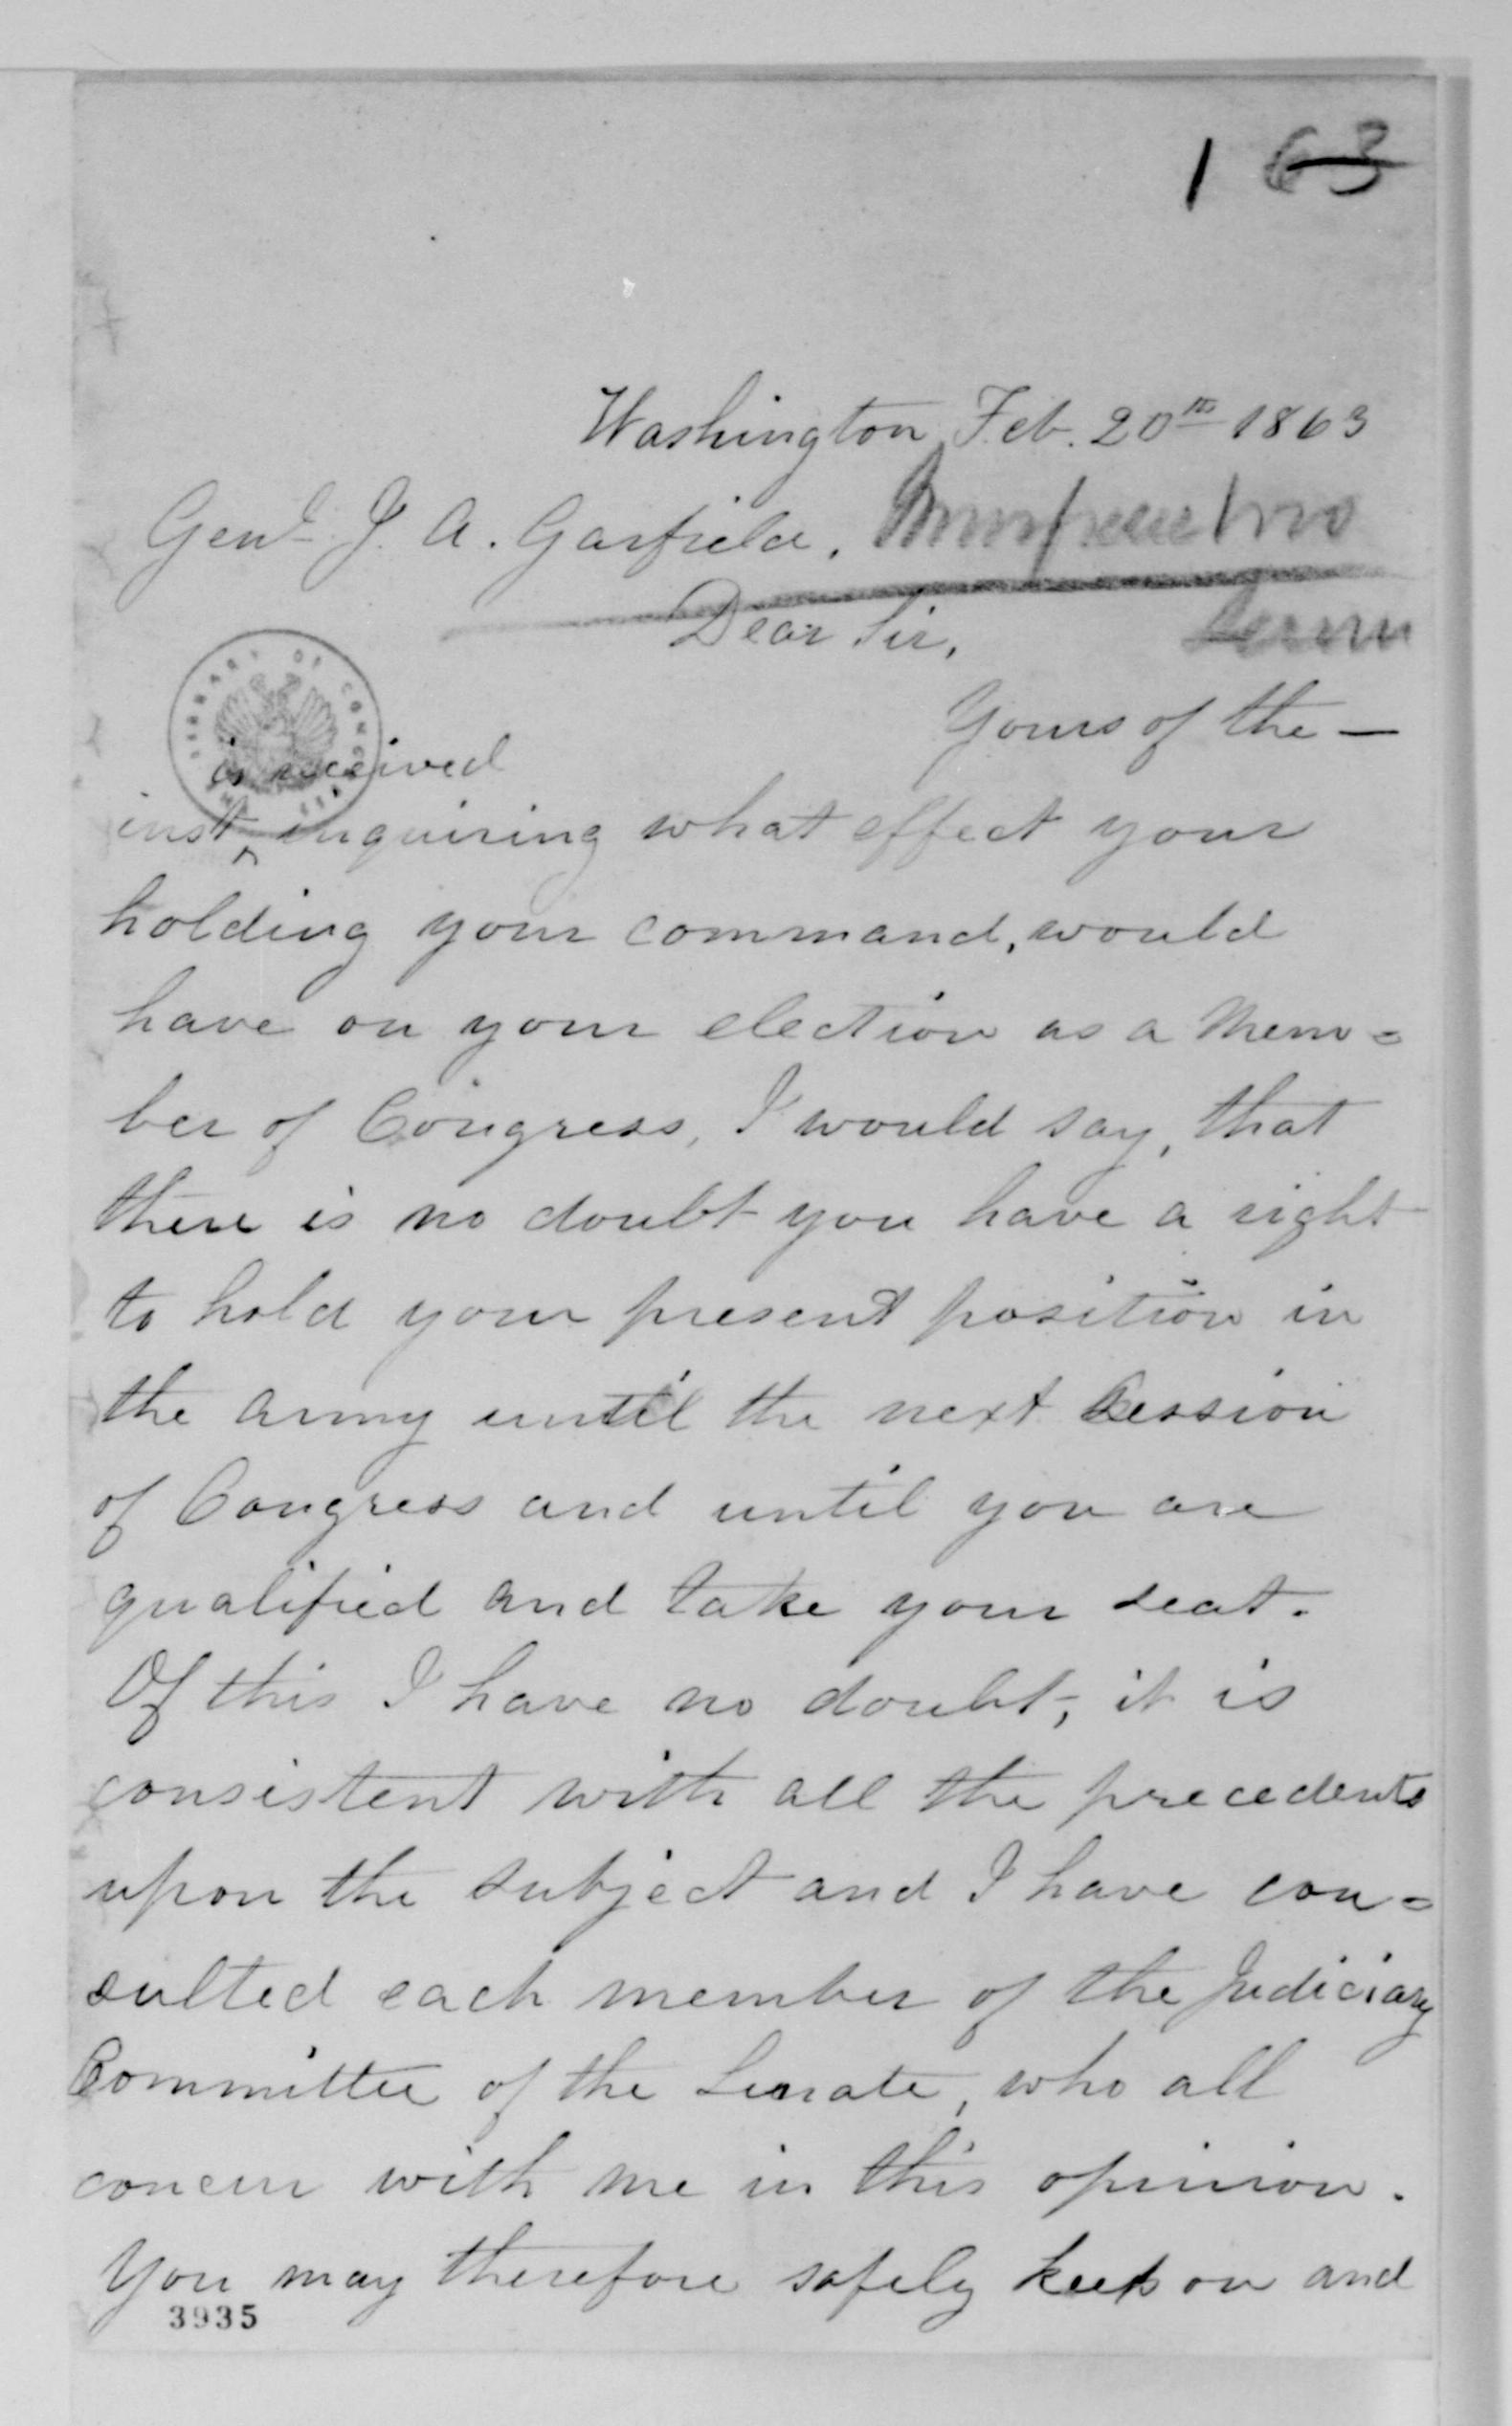 1 63
Washington, Feb. 20th 1863
Genl. J. A. Garfield. Murfreesboro
Dear Sir,
Yours of the —
is received
inst inquiring what effect your
holding your command, would
have on your election as a Mem=
ber of Congress, I would say, that
there is no doubt you have a right
to hold your present position in
the army until the next Session
of Congress and until you are
qualified and take your seat.
Of this I have no doubt, it is
consistent with all the precedents
upon the subject and I have con=
sulted each member of the Judiciary
Committee of the Senate, who all
concur with me in this opinion.
You may therefore safely keep on and
3935